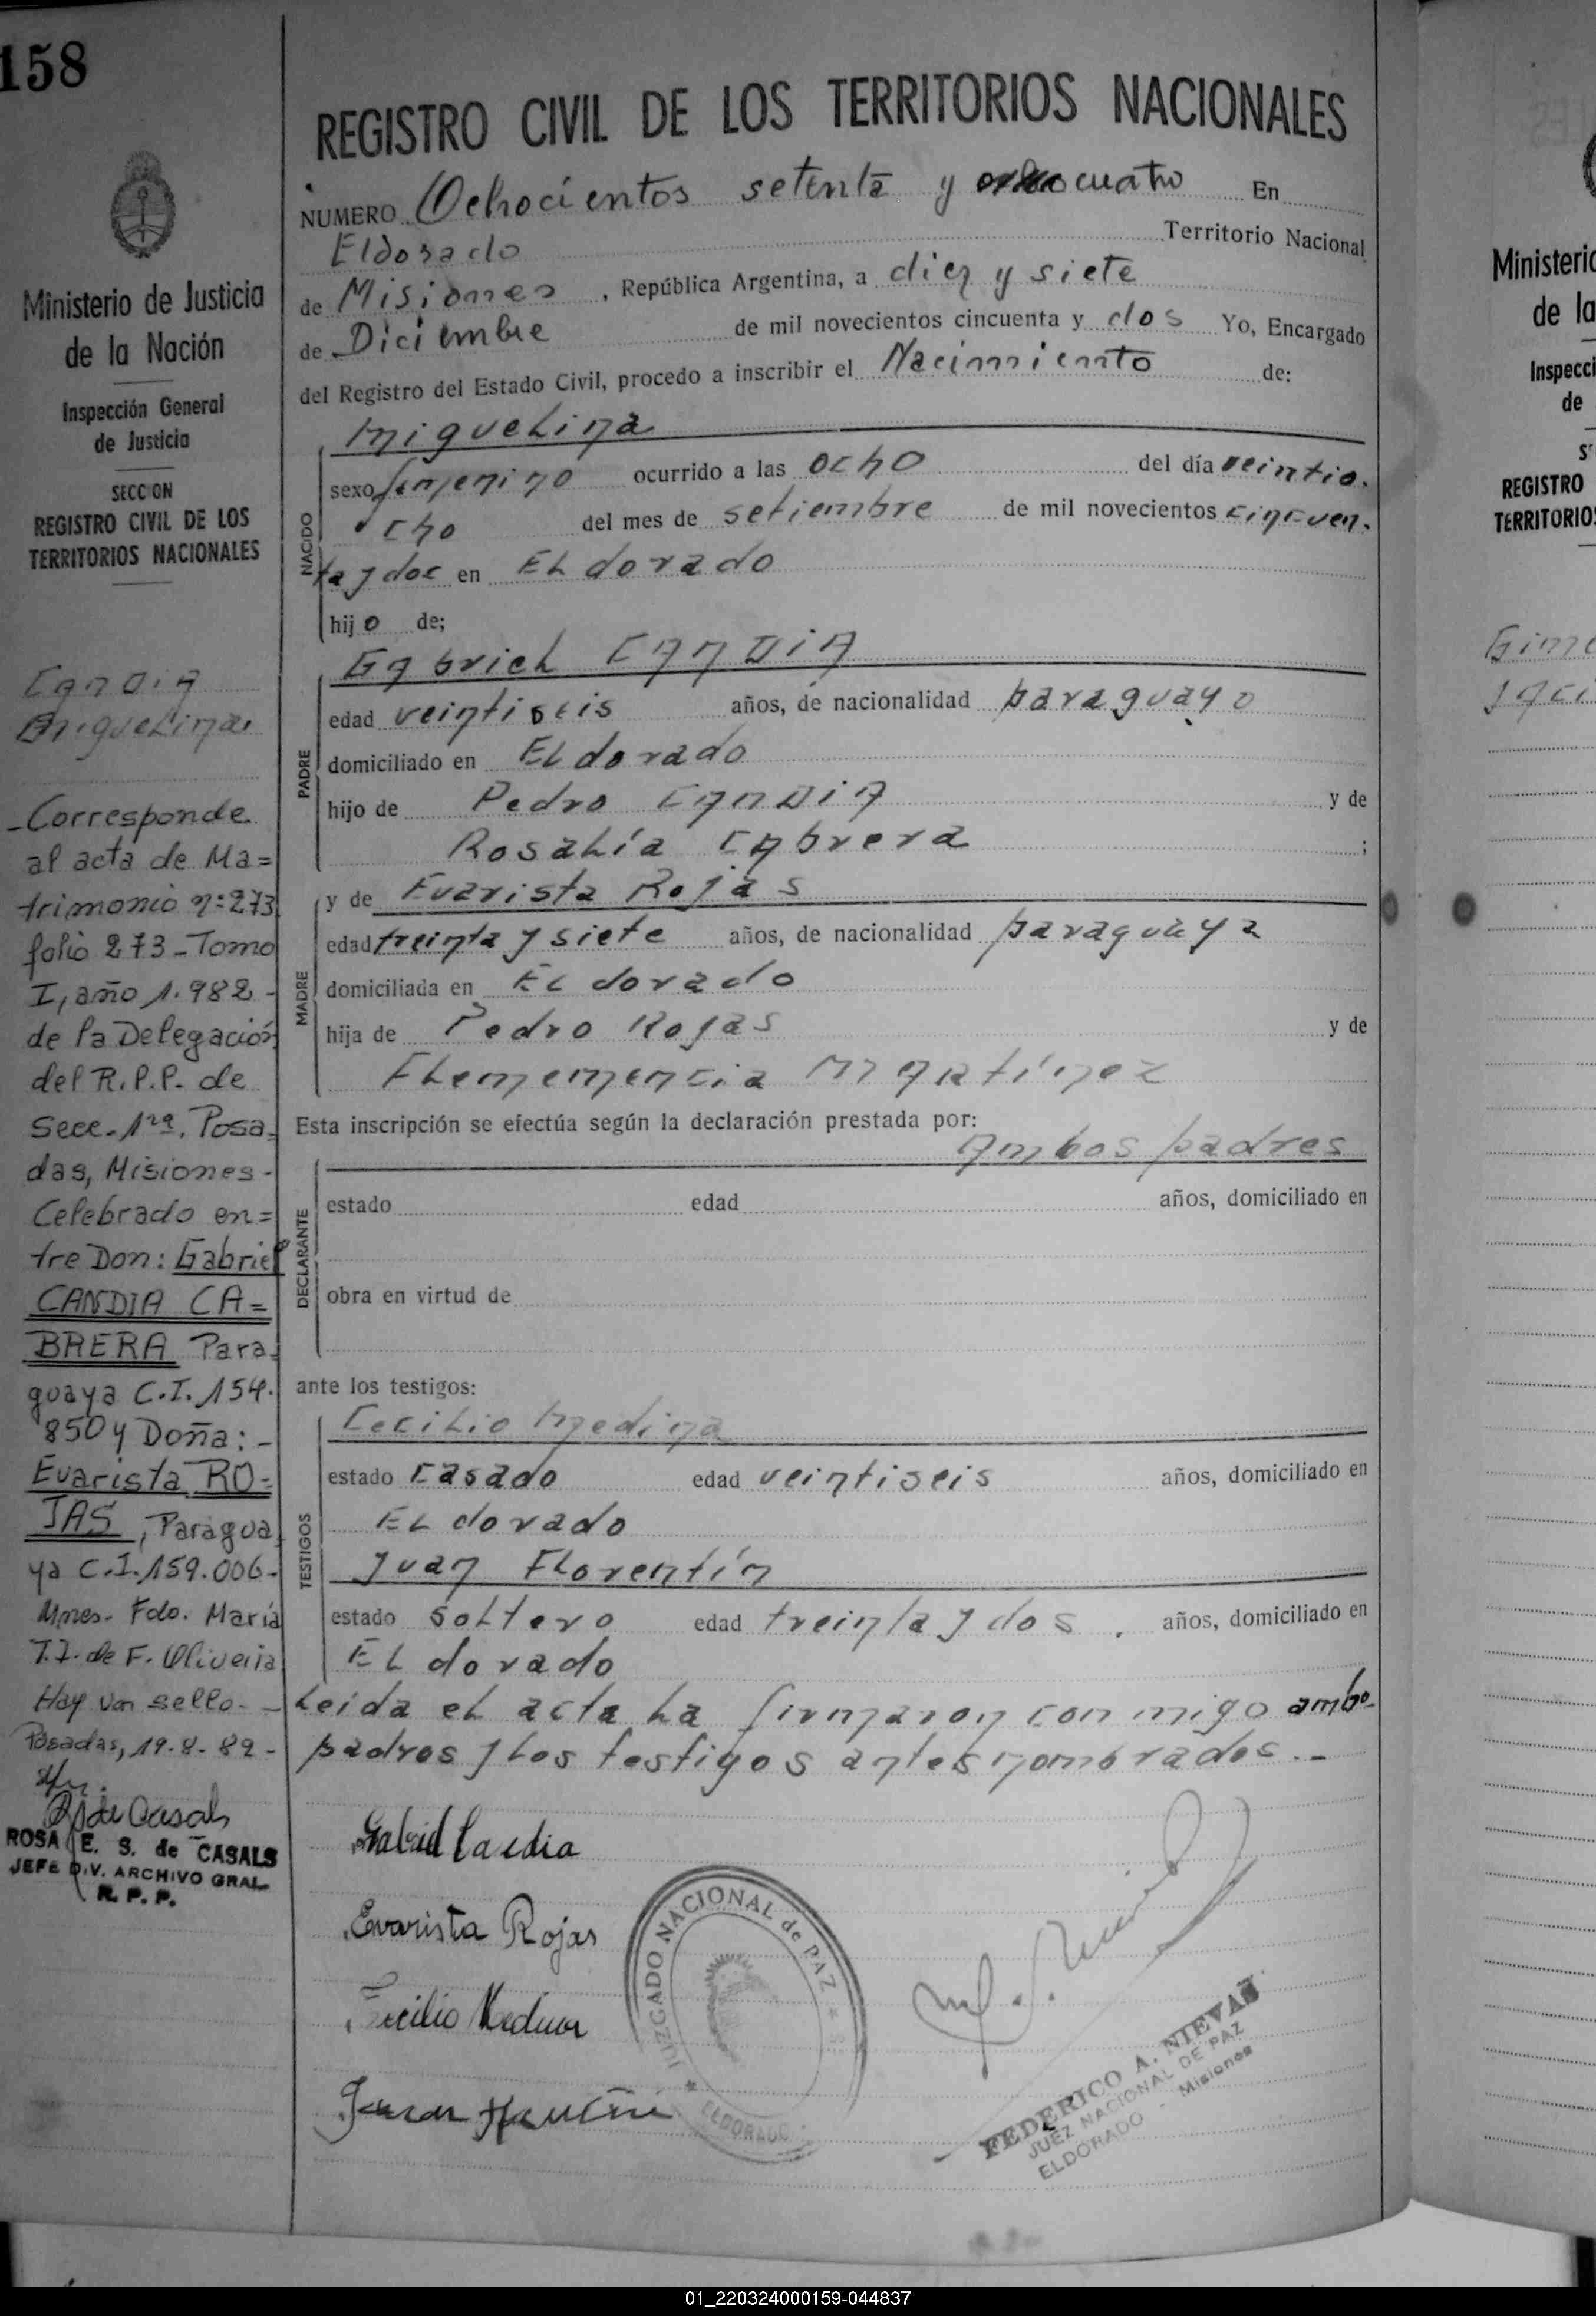 158
Ministerio de Justicia
de la Nación
Inspección General
de Justicia
SECCION
REGISTRO CIVIL DE LOS
TERRITORIOS NACIONALES
Candia
Miguelina
-Corresponde
al acta de Ma=
trimonio n:273
folio 273-Tomo
I, año 1.982-
de la Delegación
del R.P.P. de
Secc.1ra. Posa=
das, Misiones-
Celebrado en=
tre Don: Gabriel
CANDIA CA=
BRERA Para=
guaya C.I. 154.
850 y Doña:-
Evarista RO=
JAS, Paragua
ya C.I.159.006-
Mnes- Fdo. María
T.J. de F. Oliveira
Hay un sello- -
Posadas, 19-8-82-
de Casals
ROSA E. S. de CASALS
JEFE DIV. ARCHIVO GRAL
R. P. P.
REGISTRO CIVIL DE LOS TERRITORIOS NACIONALES
NUMERO Ochocientos setenta y cuatro En
Eldorado Territorio Nacional
de Misiones, República Argentina, a diez y siete
de Diciembre de mil novecientos cincuenta y dos Yo, Encargado
del Registro del Estado Civil, procedo a inscribir el Nacimiento de:
Miguelina
NACIDO
sexo femenino ocurrido a las ocho del día veintio.
ocho del mes de setiembre de mil novecientos cincuen.
ta y dos en Eldorado
hijo de;
Gabriel CANDIA
PADRE
edad veintiseis años, de nacionalidad paraguayo
domiciliado en Eldorado
hijo de Pedro CANDIA y de
Rosalía Cabrera ;
y de Evarista Rojas
MADRE
edad treinta y siete años, de nacionalidad paraguaya
domiciliada en Eldorado
hija de Pedro Rojas y de
Flemenencia Martínez
Esta inscripción se efectúa según la declaración prestada por:
Ambos padres
DECLARANTE
estado edad años, domiciliado en
obra en virtud de
ante los testigos:
Cecilio Medina
TESTIGOS
estado casado edad veintiseis años, domiciliado en
Eldorado
Juan Florentín
estado soltero edad treinta y dos, años, domiciliado en
Eldorado
Leida el acta la firmaron conmigo ambos
padres y los testigos antes nombrados.-
Gabriel Candia
Evarista Rojas
Cecilio Medina
JUZGADO NACIONAL de PAZ
ELDORADO
FEDERICO A. NIEVAS
JUEZ NACIONAL DE PAZ
ELDORADO - Misiones
Ministerio
de la
Inspecci
de
REGISTRO
TERRITORIOS
01_220324000159-044837